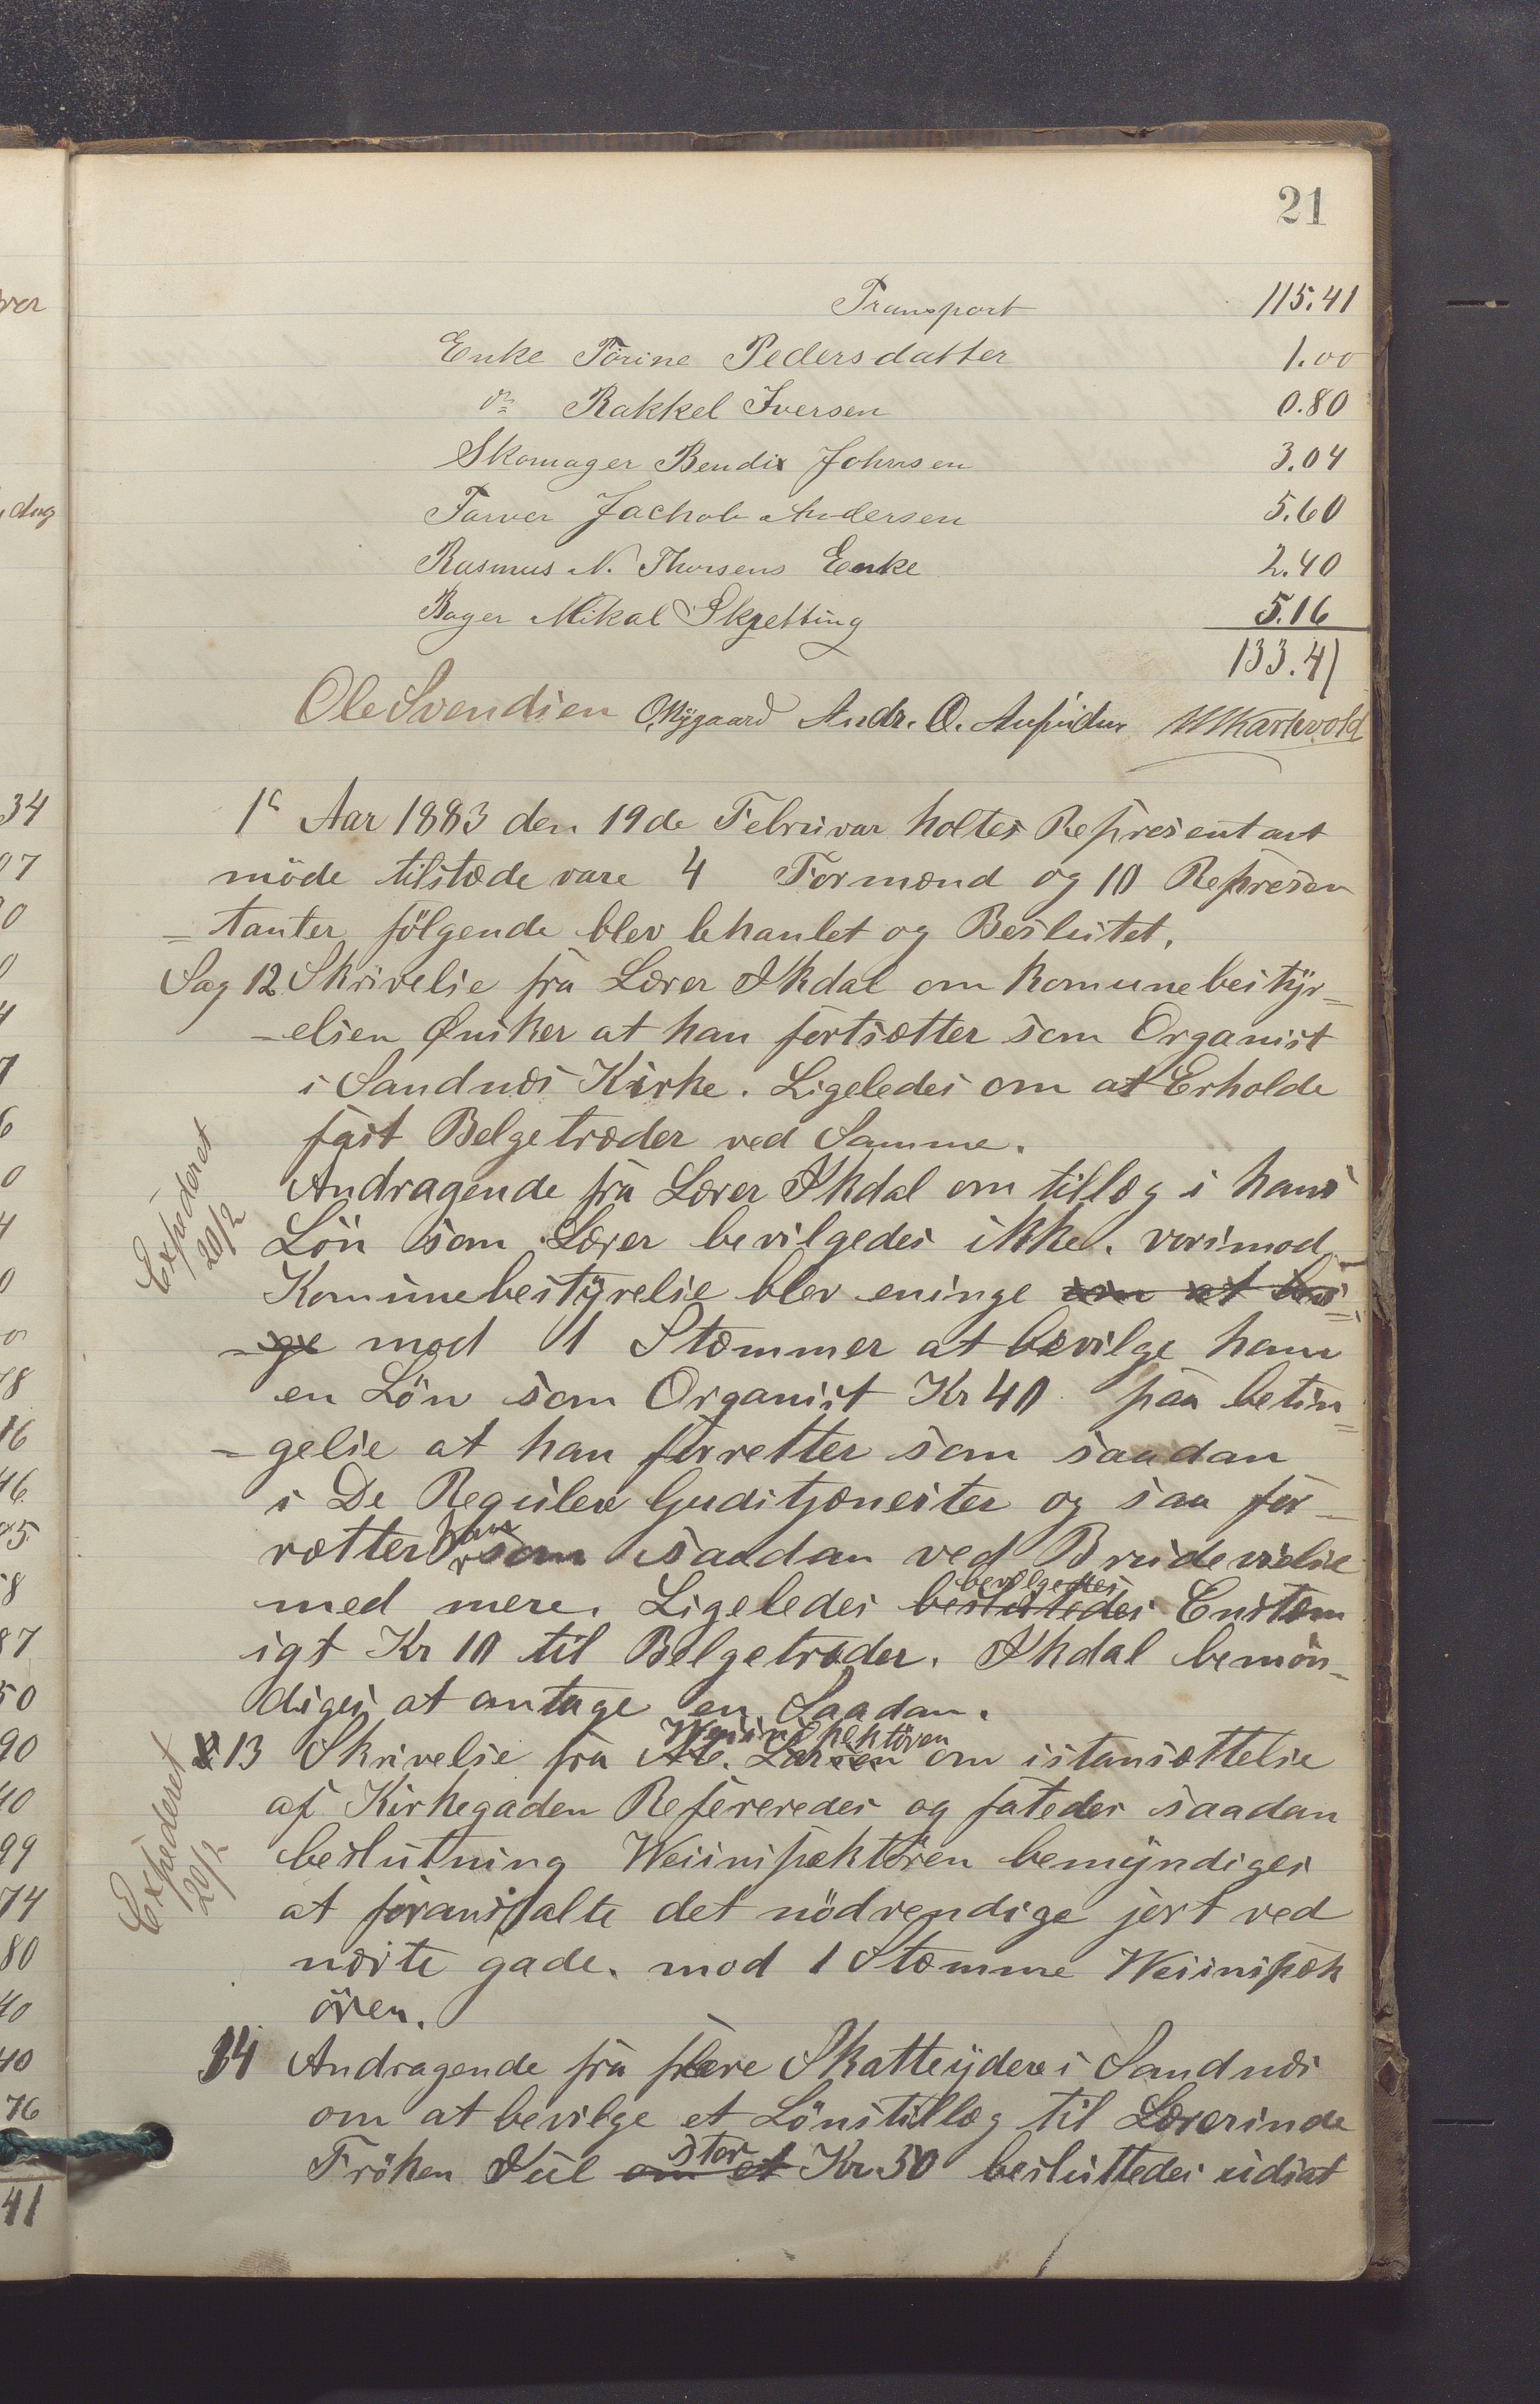 21
Transport 115.41
Enke Torine Pedersdatter 1.00
do Rakkel Iversen 0.80
Skomager Bendix Johnsen 3.04
Farver Jachob Andersen 5.60
Rasmus N. Thorsens Enke 2.40
Bager Mikal Skjetting 5.16
133.41
Ole Svendsen O. Nygaard Andr. O.
Aar 1883 den 19de Februar holtes Represent ant
möde tilstæde vare 4 Formænd og 10 Represen
= tanter fölgende blev behanlet og Besluttet.
Sag 12 Skrivelse fra Lærer Ikdal om Komunebestyr=
-elsen Ønsker at han fortsætter som Organist
i Sandnæs Kirke. Ligeledes om at Erholde
fast Belgetræder ved Samme.
Expederet
20/2
Andragende fra Lærer Ikdal om tillæg i hans
Lön som Lærer bevilgedes ikke. vorimod
Komunebestyrelse blev eninge om at bevi=
-ge mod 1 Stæmmer at bevilge ham
en Lön som Organist Kr 40 paa betin=
=gelse at han forretter som saadan
i De Regulere Gudstjænester og saa for_
rætter han som saadan ved Brudevielse
med mere. Ligeledes besluttedes bevilgedes Enstæm
igt Kr 10 til Belgetræder. Ikdal bemön_
diges at antage en Saadan.
Expederet
20/2
13 Skrivelse fra A. Larsen Weiinspektören om istansættelse
af Kirkegaden Refereredes og fatedes saadan
beslutning Weiinspektören bemyndiges
at foranstalte det nödvendige jort ved
næste gade. mod 1 Stæmme Weiinspek
ören.
14 Andragende fra flere Skatteydere i Sandnæs
om at bevilge et Lönstillæg til Lærerinde
Fröken Jul om et stor Kr. 50 besluttedes udsat